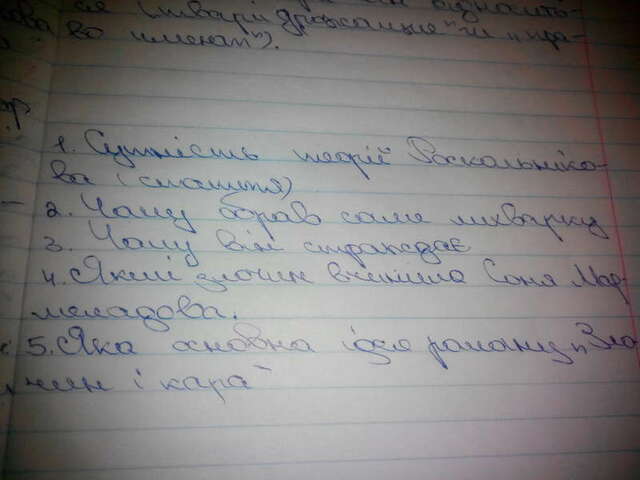 ся (тварі дрожащие" чи "пра-
во имеют").
1. Сутність теорії Раскольніко-
ва (стаття)
2. Чому обрав саме лихварку
3. Чому він страждає
4. Який злочин вчинила Соня Мар-
меладова.
5. Яка основна ідея роману „Зло
чин і кара"